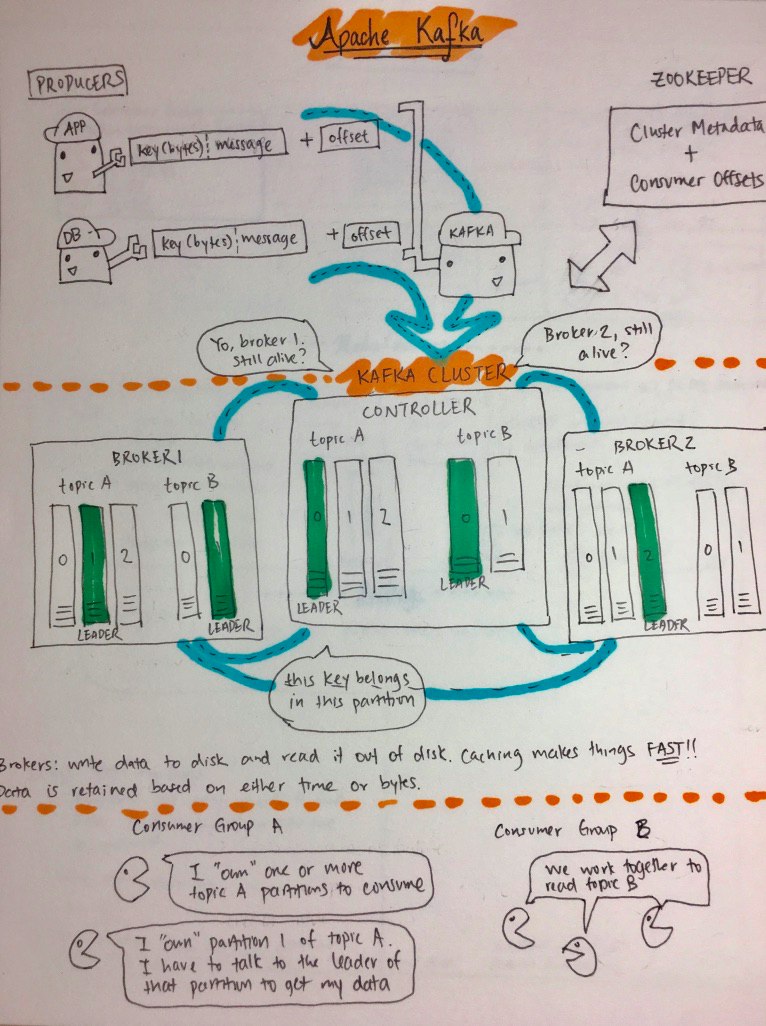 Apache Kafka
PRODUCERS
ZOOKEEPER
APP
key(bytes) message + offset
Cluster Metadata
+
Consumer Offsets
DB
key(bytes) message + offset
KAFKA
Yo, broker 1.
still alive?
Broker 2, still
alive?
KAFKA CLUSTER
BROKER 1
topic A topic B
0 1 2 0 1
LEADER LEADER
CONTROLLER
topic A topic B
0 1 2 0 1
LEADER LEADER
BROKER 2
topic A topic B
0 1 2 0 1
LEADER
this key belongs
in this partition
Brokers: write data to disk and read it out of disk. Caching makes things FAST!!
Data is retained based on either time or bytes.
Consumer Group A
I "own" one or more
topic A partitions to consume
I "own" partition 1 of topic A.
I have to talk to the leader of
that partition to get my data
Consumer Group B
we work together to
read topic B